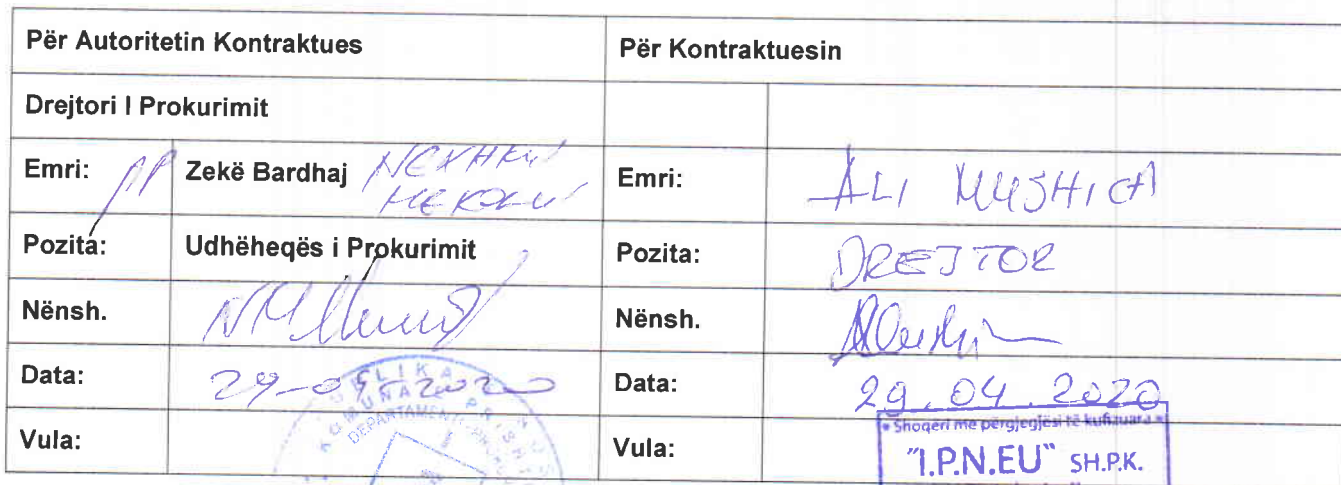 Për Autoritetin Kontraktues
Për Kontraktuesin
Drejtori I Prokurimit
Emri: Zekë Bardhaj
Emri: ALI MUSHICA
Pozita: Udhëheqës i Prokurimit
Pozita: DREJTOR
Nënsh.
Nënsh.
Data:
Data: 29.04.2020
Vula:
Vula:
DEPARTAMENTI
* Shoqëri me përgjegjësi të kufizuara *
"I.P.N.EU" SH.P.K.